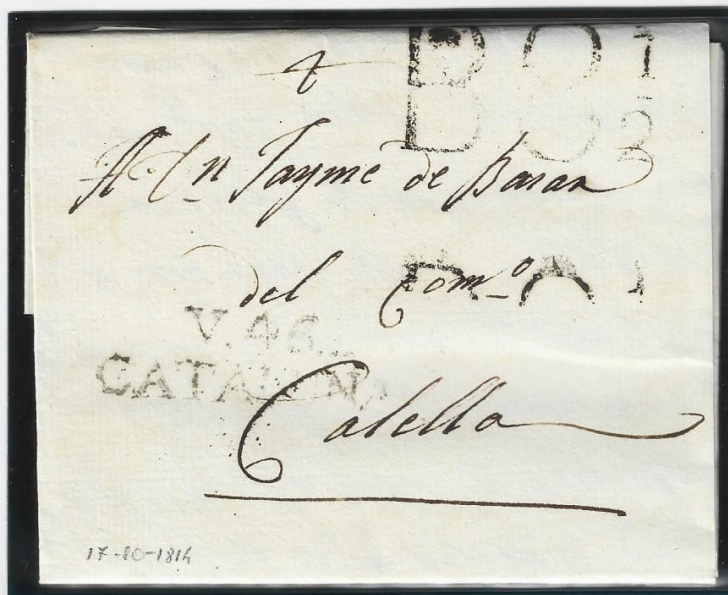 BO 1
2
A Dn Jayme de Baran
del Com.º
BO 1
V. 46.
CATALUNA
Calella
17-10-1814